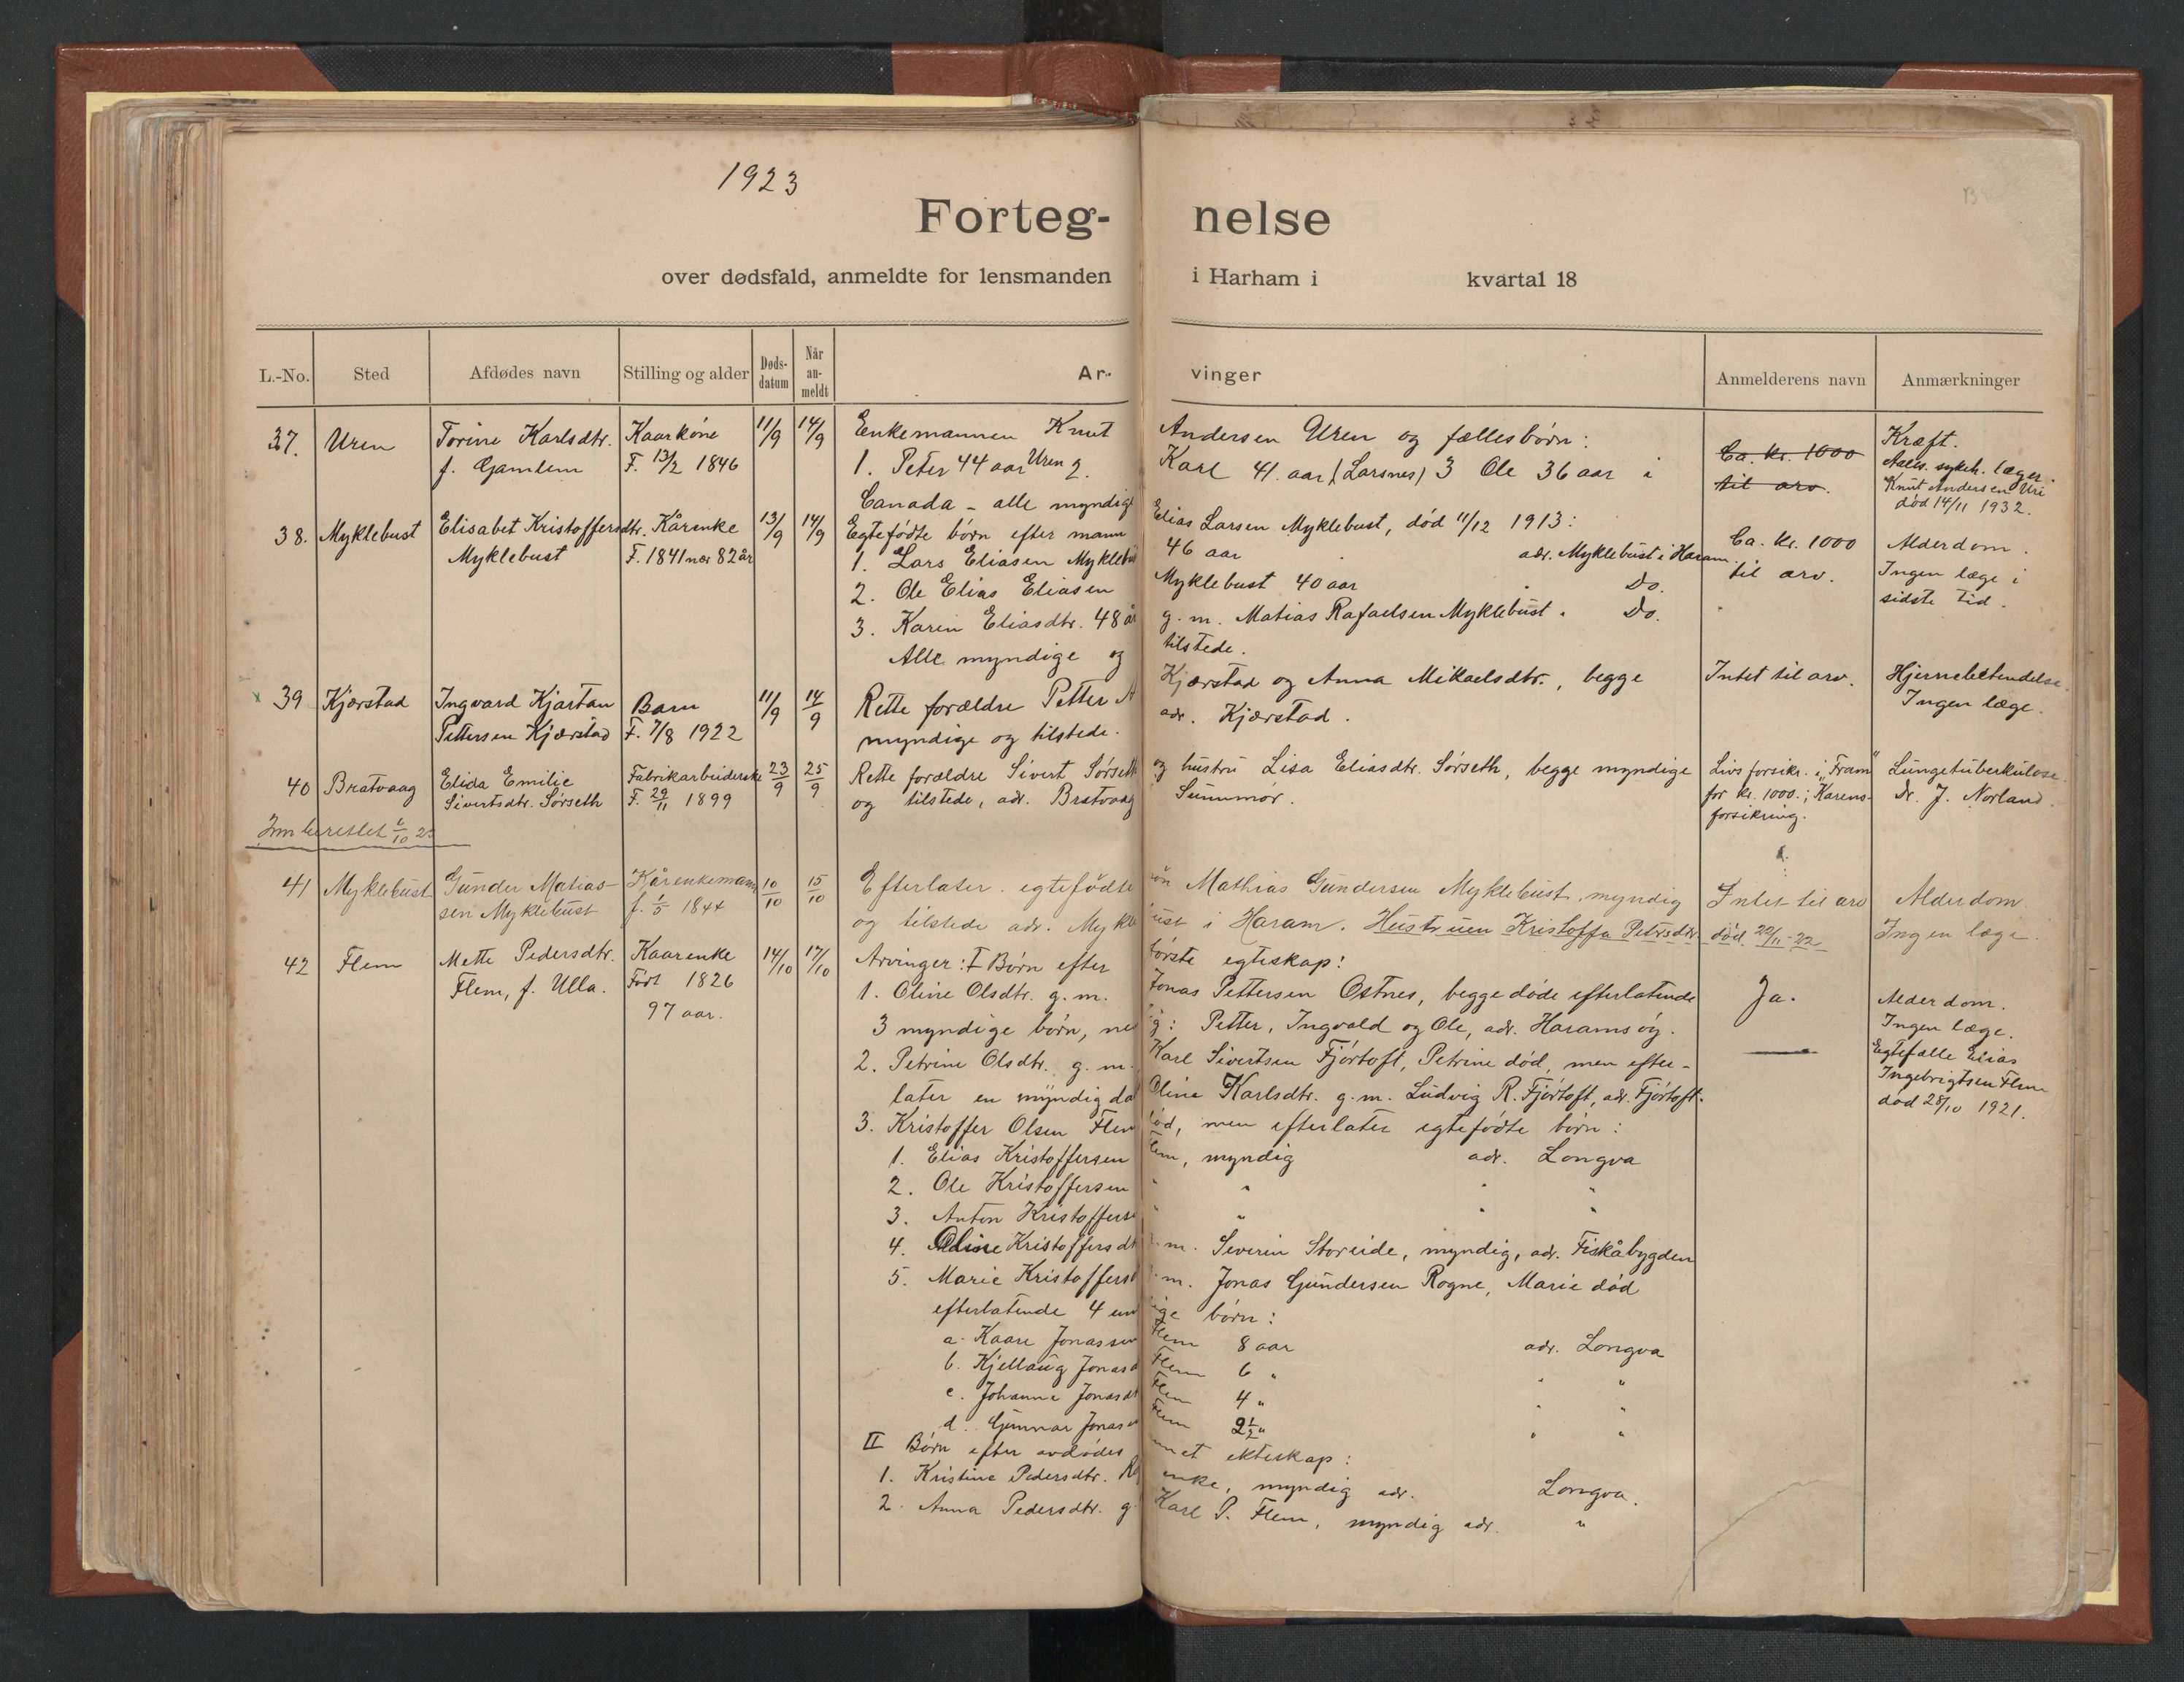 1923
Forteg- nelse
over dødsfald, anmeldte for lensmanden i Harham i kvartal 18
L.-No. Sted Afdødes navn Stilling og alder Døds-datum Når an-meldt Ar- vinger Anmelderens navn Anmærkninger
37. Uren Torine Karlsdtr. Kaarkone 11/9 14/9 Enkemannen Knut Andersen Uren og fællesbørn: Ca. kr. 1000 Kræft.
f. Gamlem F. 13/2 1846 1. Peter 44 aar Uren 2. Karl 41. aar (Larsnes) 3 Ole 36 aar i til arv. Aales. sykeh. læger.
Canada - alle myndige Knut Andersen Uri
død 14/11 1932.
38. Myklebust Elisabet Kristoffersdtr. Kårenke 13/9 14/9 Egtefødte børn efter mann Elias Larsen Myklebust, død 11/12 1913: Ca. kr. 1000 Alderdom.
Myklebust F. 1841 nær 82 år 1. Lars Eliasen Myklebu 46 aar adr. Myklebust i Haram. til arv. Ingen læge i
2. Ole Elias Eliasen Myklebust 40 aar " Do. sidste tid.
3. Karin Eliasdtr. 48 år g. m. Matias Rafaelsen Myklebust. Do.
Alle myndige og tilstede.
x 39 Kjærstad Ingvard Kjartan Barn 11/9 14/9 Rette forældre Petter A Kjærstad og Anna Mikaelsdtr., begge Intet til arv. Hjernebetendelse.
Pettersen Kjærstad F. 7/8 1922 myndige og tilstede. adr. Kjærstad. Ingen læge.
40 Bratvaag Elida Emilie Fabrikarbeiderske 23/9 25/9 Rette forældre Sivert Sørseth og hustru Lisa Eliasdtr. Sørseth, begge myndige Livsforsikr. i "Fram" Lungetuberkulose.
Sivertsdtr. Sørseth F. 29/11 1899 og tilstede, adr. Bratvaag Sunnmør. for kr. 1000.; Karens- Dr. J. Norland.
forsikring.
Innberettet 2/10 23
41 Myklebust Gunder Matias- Kårenkemann 10/10 15/10 Efterlater egtefødte søn Mathias Gundersen Myklebust, myndig Intet til arv Alderdom.
sen Myklebust f. 1/5 1844 og tilstede adr. Mykle bust i Haram. Hustruen Kristoffa Petrsdtr. død 22/11-22 Ingen læge.
42 Flem Mette Pedersdtr. Kaarenke 14/10 17/10 Arvinger: I Børn efter første egteskap:
Flem, f. Ulla. Født 1826 1. Oline Olsdtr. g. m. Jonas Pettersen Østnes, begge døde efterlatende Ja. Alderdom.
97 aar. 3 myndige børn, ne ig: Petter, Ingvald og Ole, adr. Haramsøy. Ingen læge.
2. Petrine Olsdtr. g. m. Karl Sivertsen Fjørtoft, Petrine død, men efter- — Egtefælle Elias
later en myndig da Oline Karlsdtr. g. m. Ludvig R. Fjørtoft, adr. Fjørtoft. Ingebrigtsen Flem
3. Kristoffer Olsen Flem død, men efterlater egtefødte børn: død 28/10 1921.
1. Elias Kristoffersen Flem, myndig adr. Longva
2. Ole Kristoffersen " " " "
3. Anton Kristofferse " " " "
4. Oline Kristoffersdt g. m. Severin Storeide, myndig, adr. Fiskåbygden
5. Marie Kristoffersd g. m. Jonas Gundersen Rogne, Marie død
efterlatende 4 um ige børn:
a. Kaare Jonassen Flem 8 aar adr. Longva
b. Kjellaug Jonasd Flem 6 " " "
c. Johanna Jonasdt Flem 4 " " "
d. Gunnar Jonas Flem 2 1/2 " " "
II Børn efter avdødes annet ekteskap:
1. Kristine Pedersdtr. enke, myndig adr. Longva.
2. Anna Pedersdtr. g. Karl P. Flem, myndig adr. "